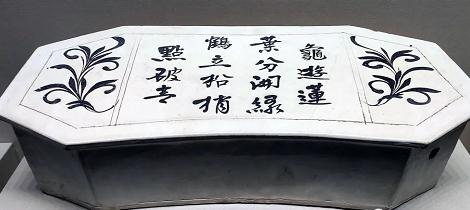 龜遊蓮
葉分開綠
鶴立松梢
點破青